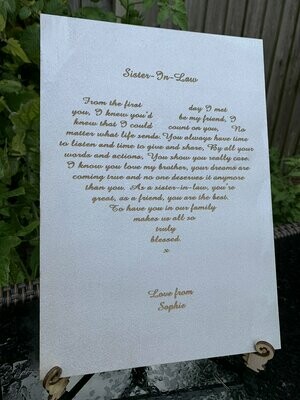 Sister-In-Law
From the first day I met
you, I knew you'd be my friend, I
knew that I could count on you, No
matter what life sends. You always have time
to listen and time to give and share, By all your
words and actions, You show you really care.
I know you love my brother, your dreams are
coming true and no one deserves it anymore
than you. As a sister-in-law, you're
great, as a friend, you are the best.
To have you in our family
makes us all so
truly
blessed.
x
Love from
Sophie